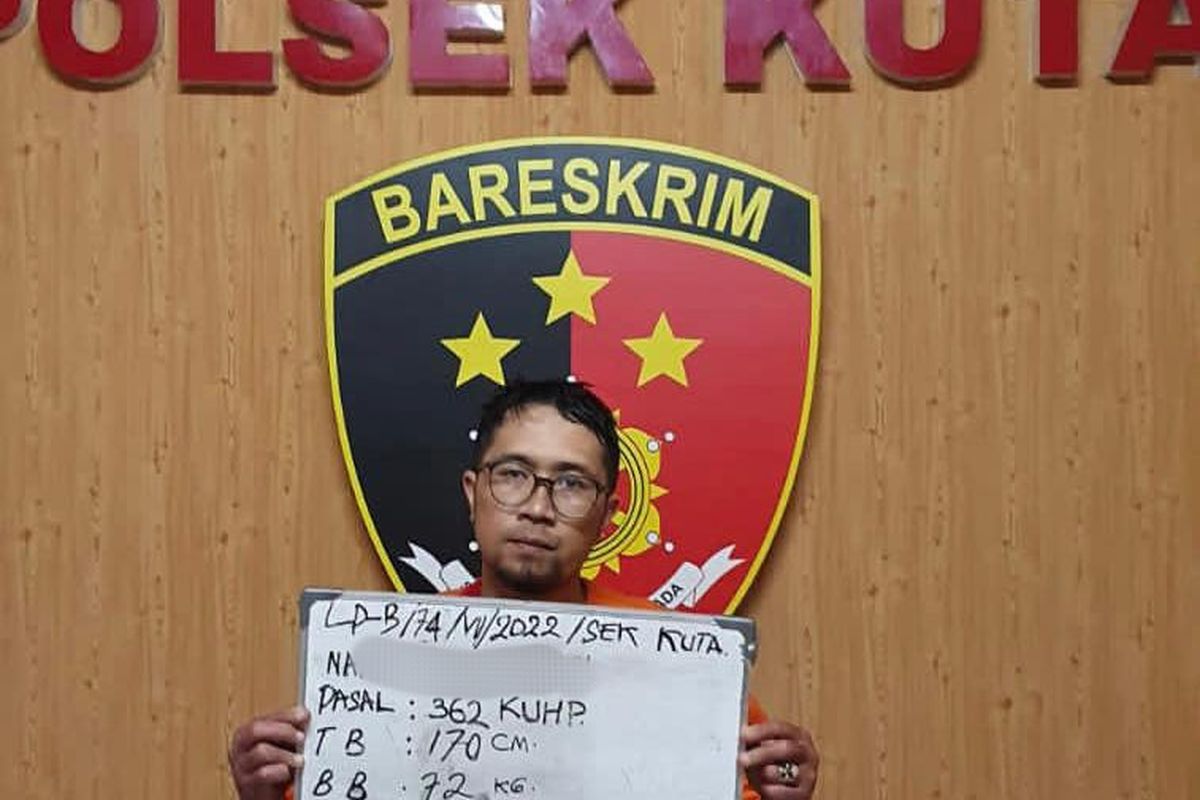 POLSEK KUTA
BARESKRIM
LP-B/74/VI/2022/SEK KUTA.
NA
PASAL : 362 KUHP.
TB : 170 CM.
BB . 72 KG.